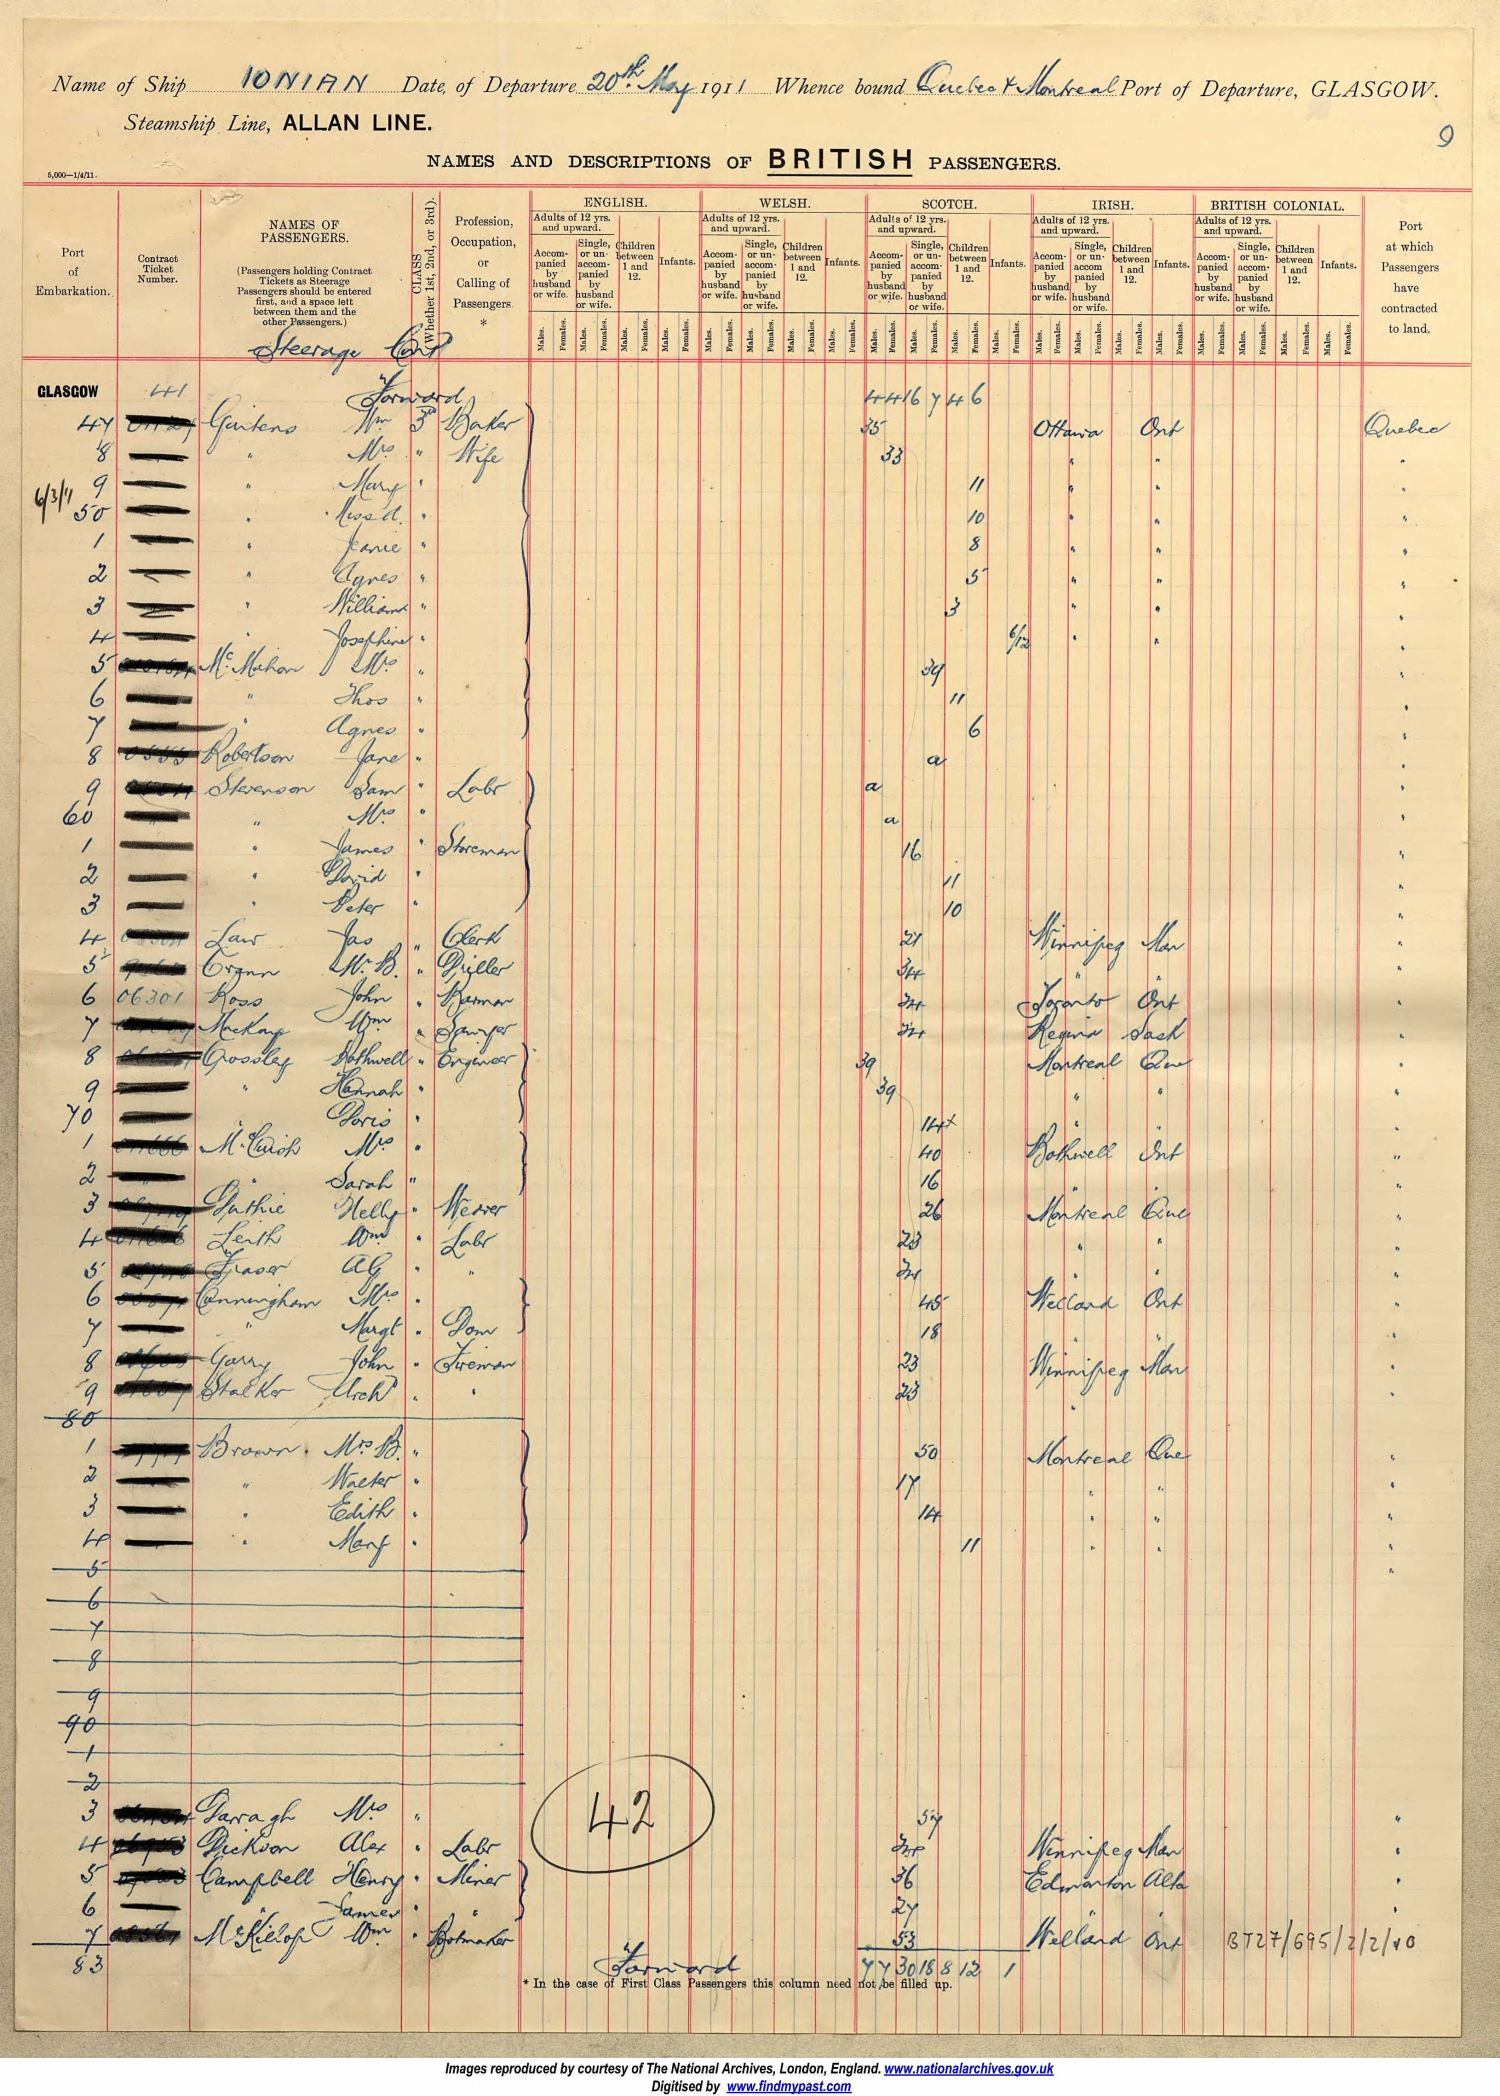 Name of Ship IONIAN Date of Departure 20th May 1911 Whence bound Quebec & Montreal Port of Departure, GLASGOW.
Steamship Line, ALLAN LINE.
9
NAMES AND DESCRIPTIONS OF BRITISH PASSENGERS.
5,000—1/4/11.
Port of Embarkation.
Contract Ticket Number.
NAMES OF PASSENGERS.
(Passengers holding Contract Tickets as Steerage Passengers should be entered first, and a space left between them and the other Passengers.)
Steerage Cont
CLASS (Whether 1st, 2nd, or 3rd).
Profession, Occupation, or Calling of Passengers *
ENGLISH. WELSH. SCOTCH. IRISH. BRITISH COLONIAL.
Adults of 12 yrs. and upward. Accompanied by husband or wife. Single, or unaccompanied by husband or wife. Children between 1 and 12. Infants. Males. Females.
Port at which Passengers have contracted to land.
GLASGOW 41 Forward 4 4 16 7 4 6
47 Wm 3rd Baker 35 Ottawa Ont Quebec
8 " Mrs " Wife 33 " " "
9 " Mary " 11 " " "
6/3/11
50 " Miss A. " 10 " " "
1 " Jeanie " 8 " " "
2 " Agnes " 5 " " "
3 " William " 3 " " "
4 " Josephine " 6/12 " " "
5 McMahon Mrs " 39 "
6 " Thos " 11 "
7 " Agnes " 6 "
8 Robertson Jane " a "
9 Stevenson Sam " Labr a "
60 " Mrs " a "
1 " James " Storeman 16 "
2 " David " 11 "
3 " Peter " 10 "
4 Law Jas " Clerk 21 Winnipeg Man "
5 Mr B. " 34 " " "
6 06301 Ross John " Barman 24 Toronto Ont "
7 Mackay Wm " Sawyer 24 Regina Sask "
8 Crossley Bothwell " Engineer 39 Montreal Que "
9 " Hannah " 39 " " "
70 " Doris " 14 " "
1 Mrs " 40 Bothwell Ont "
2 " Sarah " 16 " " "
3 Guthie Nelly " Weaver 26 Montreal Que "
4 Leith Wm " Labr 23 " " "
5 Fraser AG " " 24 " " "
6 Cunningham Mrs " 45 Welland Ont "
7 " Margt " Dom 18 " " "
8 Garry John " Fireman 23 Winnipeg Man "
9 Stalker Archd " " 23 " "
80
1 Brown Mrs B. " 50 Montreal Que "
2 " Walter " 17 " " "
3 " Edith " 14 " " "
4 " Mary " 11 " " "
5
6
7
8
9
90
1
2
42
3 Darragh Mrs " 57 "
4 Dickson Alex " Labr 24 Winnipeg Man "
5 Campbell Henry " Miner 36 Edmonton Alta "
6 " James " " 27 " "
7 McKillop Wm " Bootmaker 53 Welland Ont BT27/695/2/2/10
83 Forward 7 7 30 18 8 12 1
* In the case of First Class Passengers this column need not be filled up.
Images reproduced by courtesy of The National Archives, London, England. www.nationalarchives.gov.uk
Digitised by www.findmypast.com